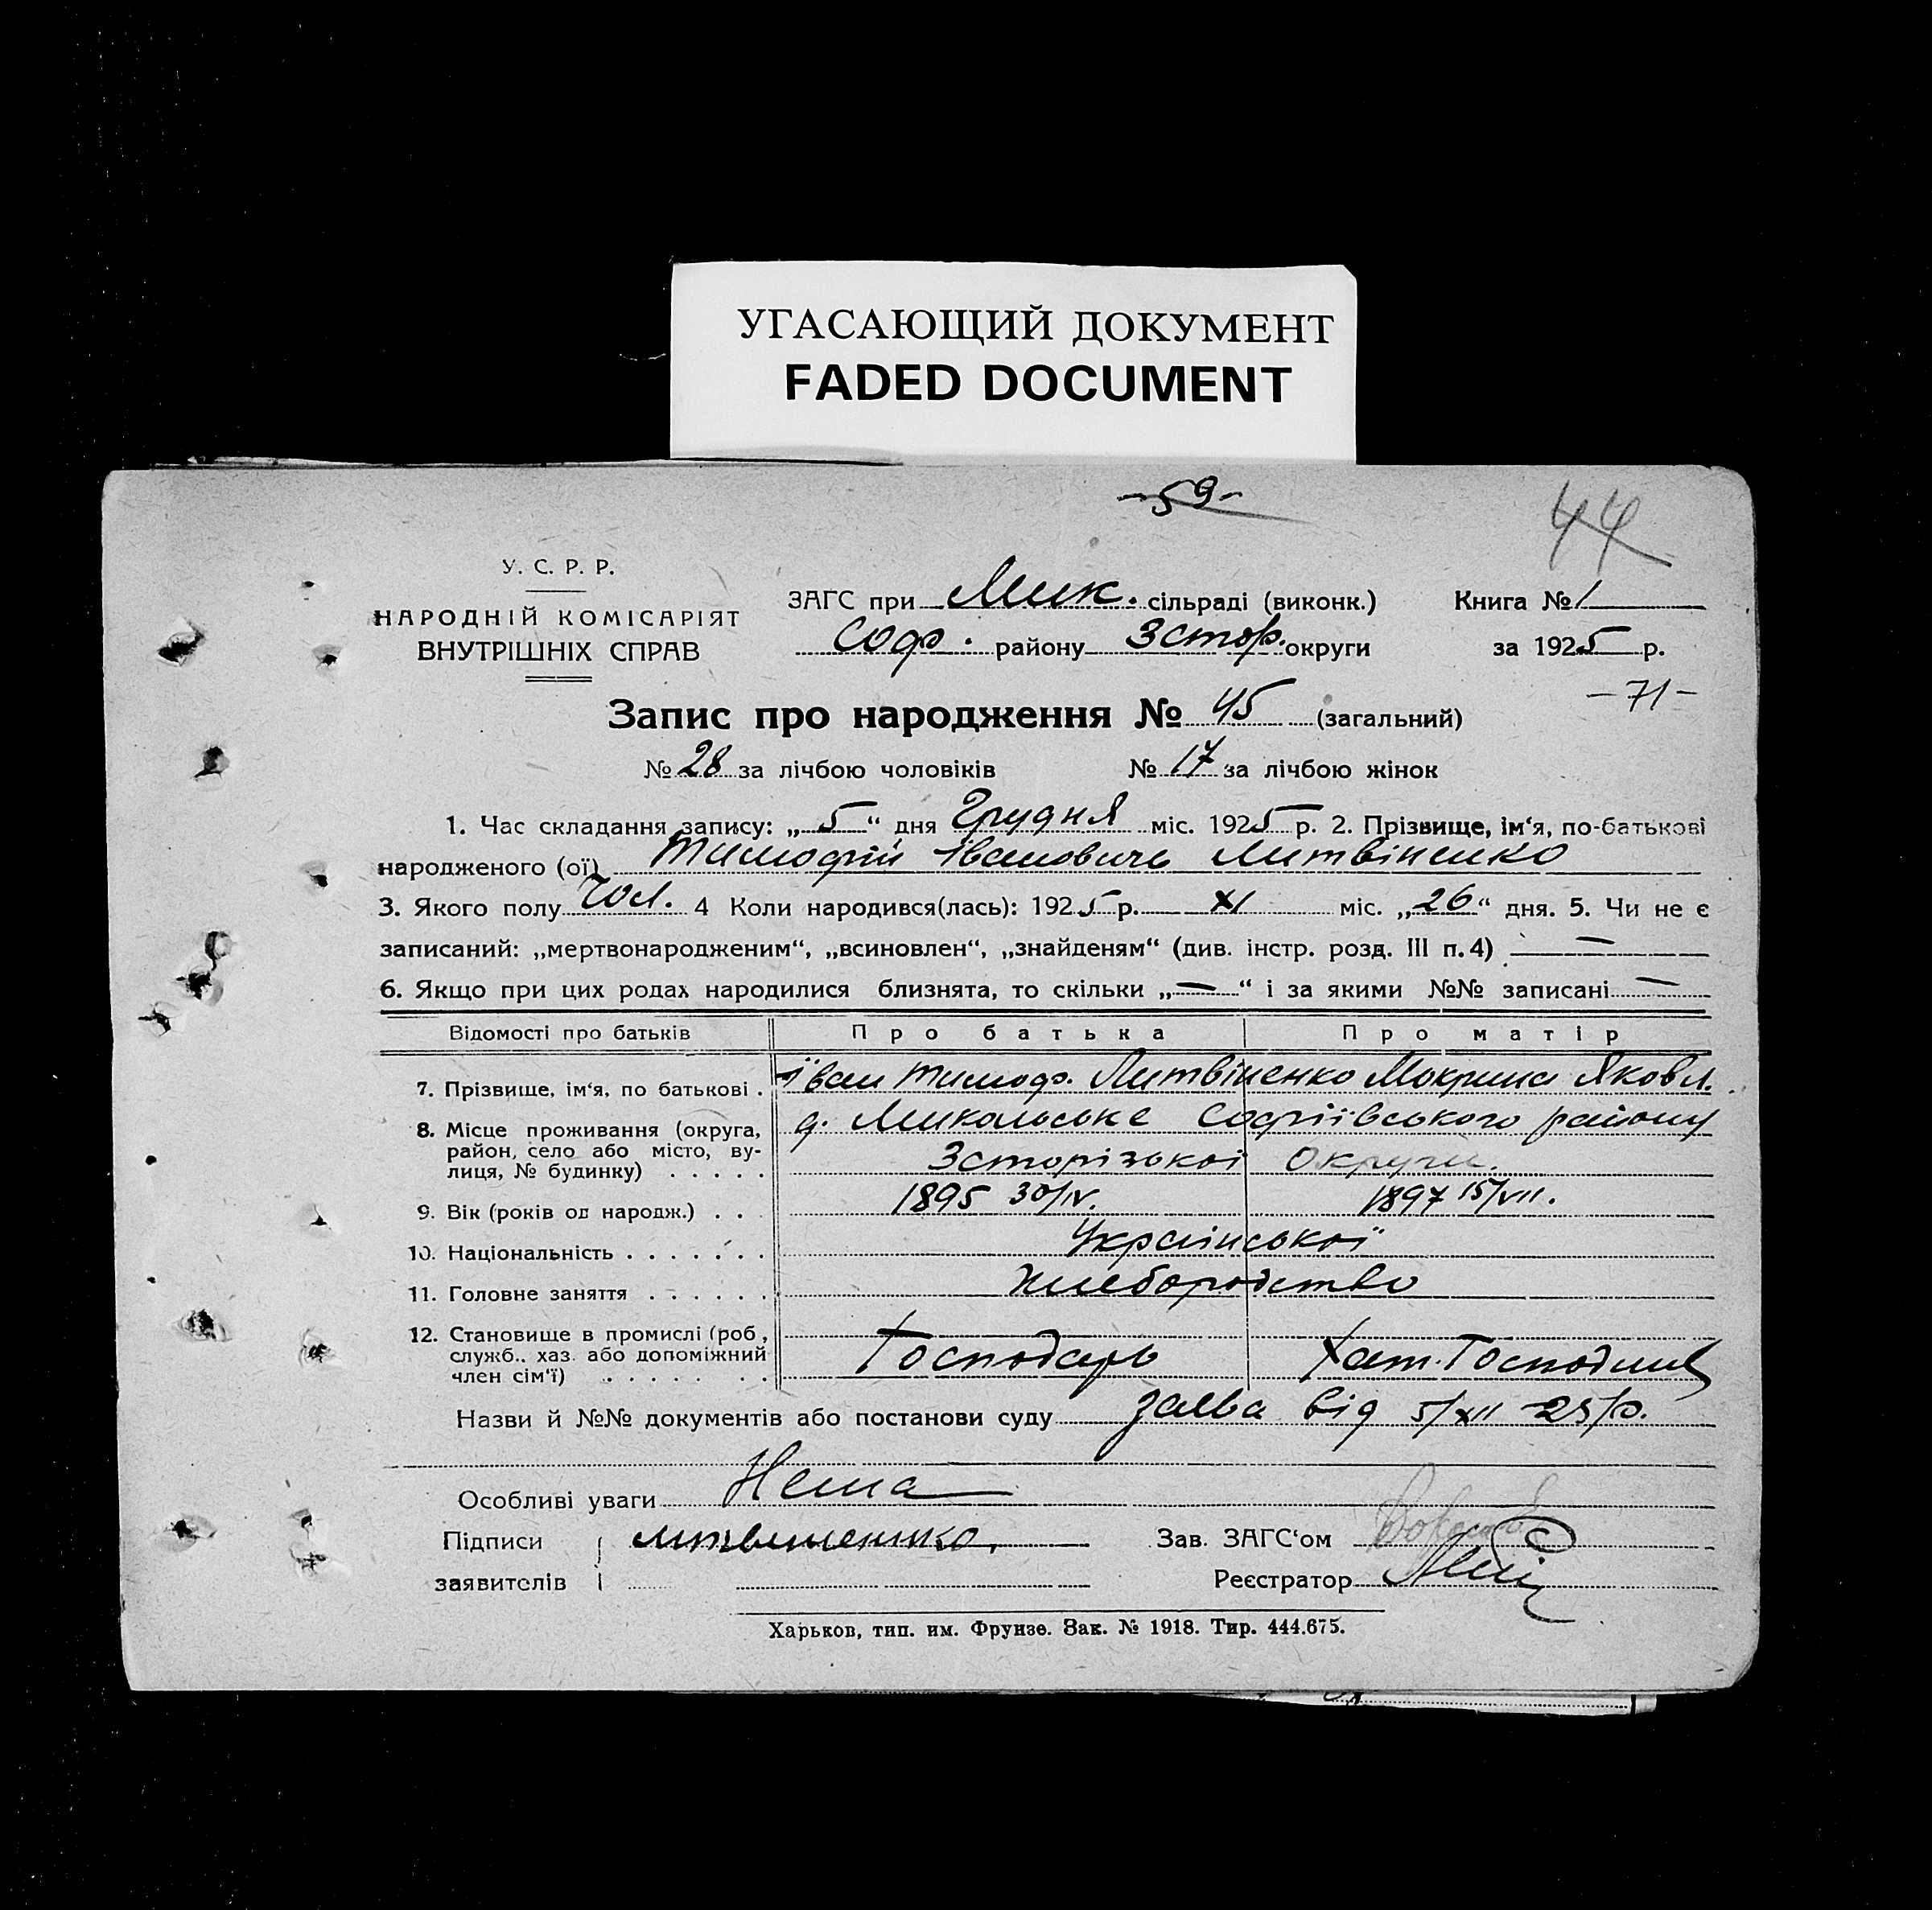 УГАСАЮЩИЙ ДОКУМЕНТ
FADED DOCUMENT
-59-
44
У. С. Р. Р.
НАРОДНІЙ КОМІСАРІЯТ
ВНУТРІШНІХ СПРАВ
ЗАГС при Мик. сільраді (виконк.)
Соф. району Зспор. округи
Книга № 1
за 1925 р.
-71-
Запис про народження № 45 (загальний)
№ 28 за лічбою чоловіків № 17 за лічбою жінок
1. Час складання запису: „5“ дня Грудня міс. 1925 р. 2. Прізвище, ім‘я, по-батькові
народженого (ої) Тимофій Іванович Литвіненко
3. Якого полу Чол. 4 Коли народився(лась): 1925 р. XI міс. „26“ дня. 5. Чи не є
записаний: „мертвонародженим“, „всиновлен“, „знайденям“ (див. інстр. розд. III п. 4) —
6. Якщо при цих родах народилися близнята, то скільки „—“ і за якими №№ записані —
Відомості про батьків Про батька Про матір
7. Прізвище, ім‘я, по батькові . Іван Тимоф. Литвіненко Мокрина Яковл.
8. Місце проживання (округа, район, село або місто, вулиця, № будинку) . . . . . д. Микольське Софіївського району
Зспорізької Округи.
9. Вік (років од народж.) . . . 1895 30/IV. 1897 15/VII.
10. Національність . . . . . . . Української
11. Головне заняття . . . . . . Хлебородство
12. Становище в промислі (роб., служб., хаз. або допоміжний член сім‘ї) . . . . . . . . Господарь Хат. Господиня
Назви й №№ документів або постанови суду заява від 5/XII 25 р.
Особливі уваги Нема
Підписи Литвиненко.
заявителів
Зав. ЗАГС‘ом
Реєстратор
Харьков, тип. им. Фрунзе. Зак. № 1918. Тир. 444.675.